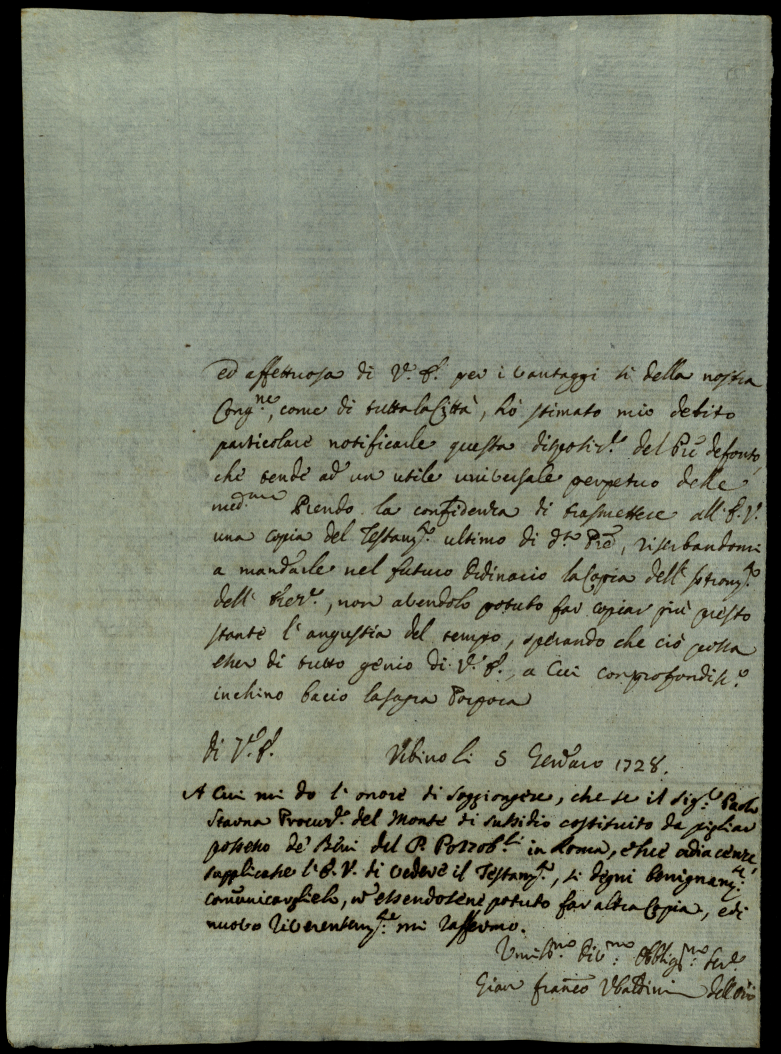 ed affettuosa di V.ª E.ª per i vantaggi sì della nostra
Cong.ne, come di tutta la Città, hò stimato mio debito
particolare notificarle questa disposiz.e del Prē defonto,
che tende ad un utile universale perpetuo delle
med.me Prendo la confidenza di trasmettere all' E.V.
una copia del Testam.to ultimo di d.to Prē, riserbandomi
a mandarle nel futuro Ordinario la Copia dell' Istrom.to
dell' , non avendolo potuto far copiar più presto
stante l' angustia del tempo, sperando che ciò possa
esser di tutto genio di V.ª E.ª, a Cui con profondiss.o
inchino bacio la sagra Porpora
di V.ª E.ª Urbino li 5 Genaro 1728.
A Cui mi do l' onore di soggiongere, che se il Sig.r Paolo
Procur.e del Monte di Sussidio costituito da pigliar
possesso de Beni del P. in Roma, e sue adiacenze,
supplicasse l' E. V. di vedere il Testam.to, si degni benignam.te
comunicarglielo, n̄ essendosene potuto far altra Copia, e di
nuovo riverentem.te mi raffermo.
Umiliss.mo Div.mo Obblig.mo Ser.e
Gian Franc̄o Ubaldini dell' Orō